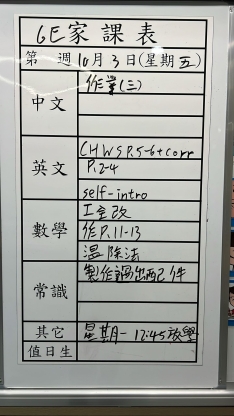 6E家課表
第 週 10月3日(星期五)
中文 作業(三)
英文 CHWS P.5-6+corr
P.2-4
self-intro
數學 工全改
作P.11-13
溫除法
常識 製作調出配件
其它 星期一 12:45放學
值日生